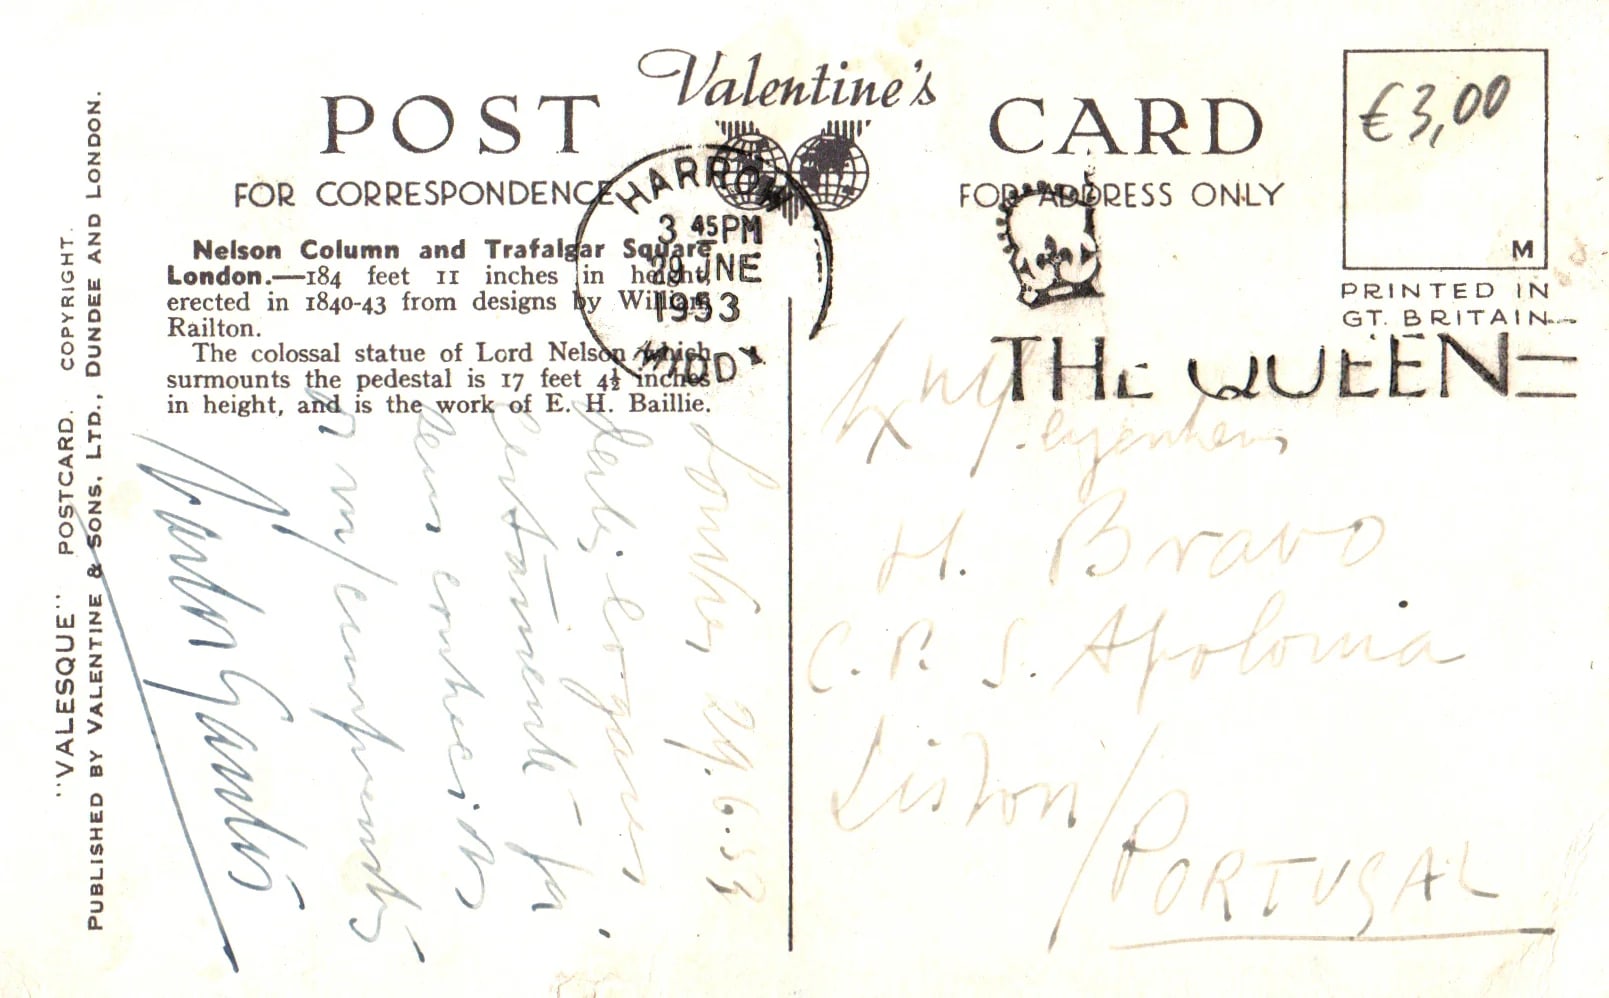 "VALESQUE" POSTCARD. COPYRIGHT.
PUBLISHED BY VALENTINE & SONS, LTD., DUNDEE AND LONDON.
Valentine's
POST CARD
FOR CORRESPONDENCE
FOR ADDRESS ONLY
Nelson Column and Trafalgar Square,
London.—184 feet 11 inches in height,
erected in 1840-43 from designs by William
Railton.
The colossal statue of Lord Nelson which
surmounts the pedestal is 17 feet 4½ inches
in height, and is the work of E. H. Baillie.
HARROW
3 45PM
29 JNE
1953
MIDDX
THE QUEEN
€3,00
M
PRINTED IN
GT. BRITAIN
Londres, 29.6.53
Destes lugares,
certamente já
seus conhecidos
os m/cumprimentos
Santos
H. Bravo
C. P. S. Apolonia
Lisbon/
PORTUGAL